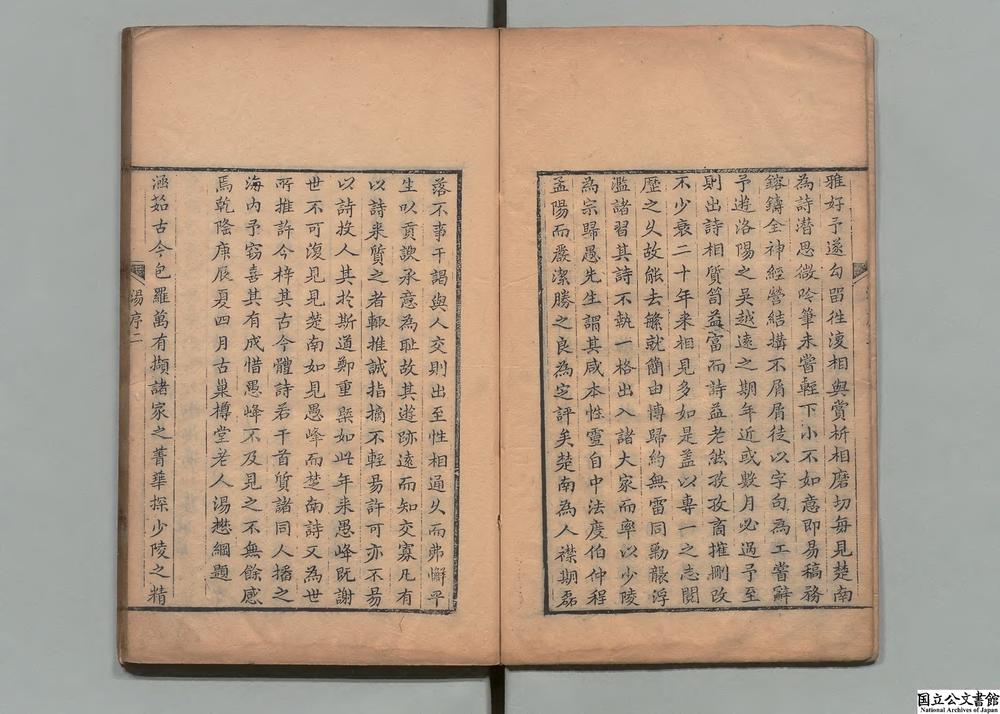 雅好予遂句留往復相與賞析相磨切每見楚南
為詩潜思微吟筆未嘗輕下小不如意即易稿務
鎔鑄全神經營結搆不屑屑徒以字句為工嘗辭
予遊洛陽之吴越遠之期年近或數月必過予至
則出詩相質笥益富而詩益老然孜孜商摧刪改
不少衰二十年来相見多如是葢以專一之志閱
歷之乆故能去䋣就簡由博歸約無雷同勦襲浮
濫諸習其詩不執一格出入諸大家而率以少陵
為宗歸愚先生謂其咸本性靈自中法度伯仲程
孟陽而嚴潔勝之良為定評矣楚南為人襟期磊
落不事干謁與人交則出至性相通乆而弗懈平
生以貢諛承意為耻故其遊跡遠而知交寡凡有
以詩来質之者輙推誠指摘不輕易許可亦不易
以詩投人其扵斯道鄭重槩如此年来愚峰既謝
世不可復見見楚南如見愚峰而楚南詩又為世
所推許今梓其古今體詩若干首質諸同人播之
海内予竊喜其有成惜愚峰不及見之不無餘感
焉乾隆庚辰夏四月古巢樽堂老人湯懋綱題
湯序二
涵茹古今包羅萬有擷諸家之菁華探少陵之精
国立公文書館
National Archives of Japan